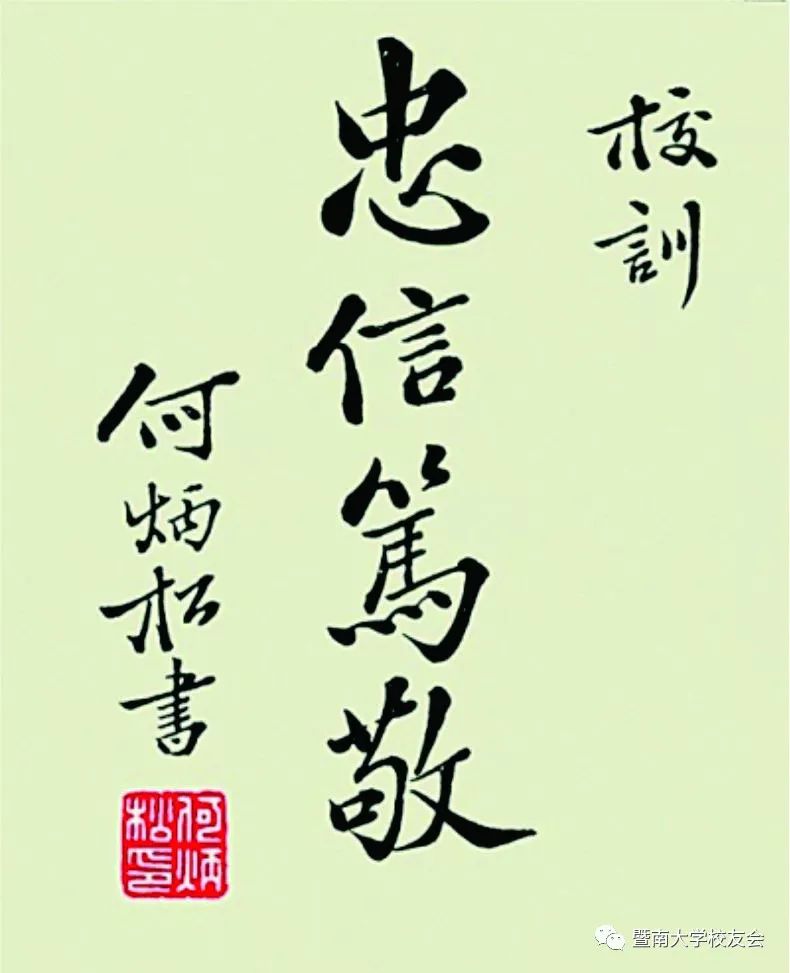 校訓
忠信篤敬
何炳松書
何炳
松印
暨南大学校友会